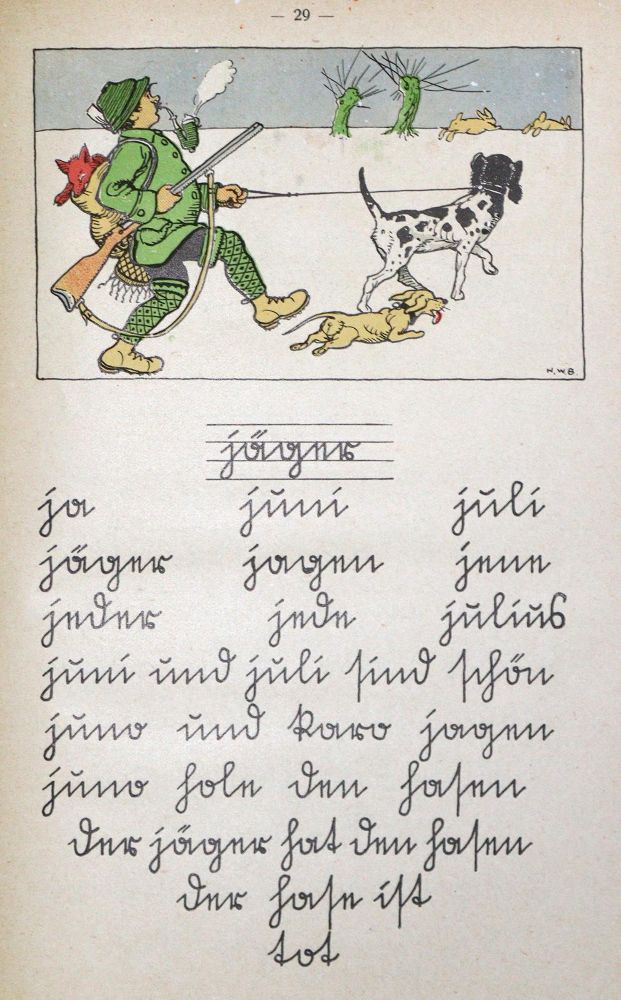 — 29 —
N.W.B.
jäger
ja juni juli
jäger jagen jene
jeder jede julius
juni und juli sind schön
juno und karo jagen
juno hole den hasen
der jäger hat den hasen
der hase ist
tot